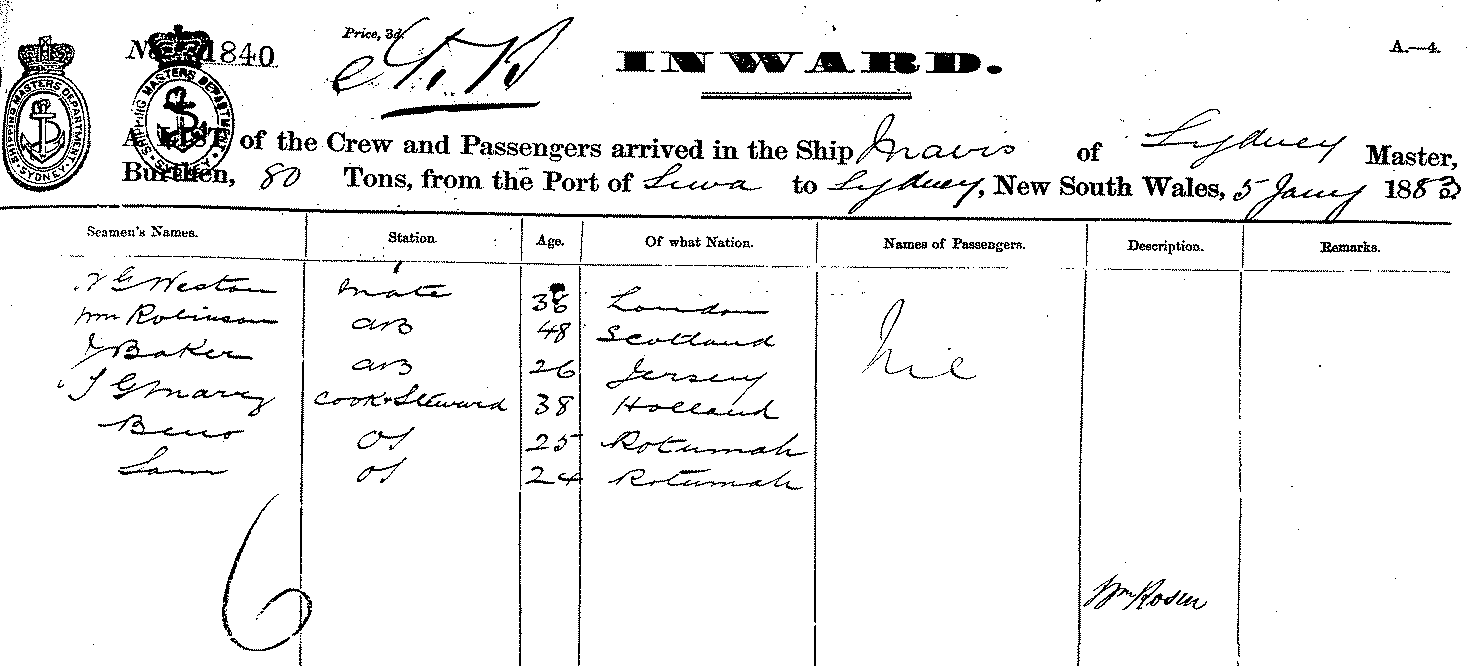 No. 1840
Price, 3d.
INWARD.
A.—4.
SHIPPING MASTERS DEPARTMENT · SYDNEY ·
SHIPPING MASTERS DEPARTMENT · SYDNEY ·
A LIST of the Crew and Passengers arrived in the Ship Mavis of Sydney Master,
Burthen, 80 Tons, from the Port of Suva to Sydney, New South Wales, 5 Jany 1883
Seamen's Names. Station. Age. Of what Nation. Names of Passengers. Description. Remarks.
G Weston Mate 38 London
Wm Robinson AB 48 Scotland Nil
J Baker AB 26 Jersey
Cook & Steward 38 Holland
OS 25 Rotumah
Sam OS 24 Rotumah
6
Wm Rosen